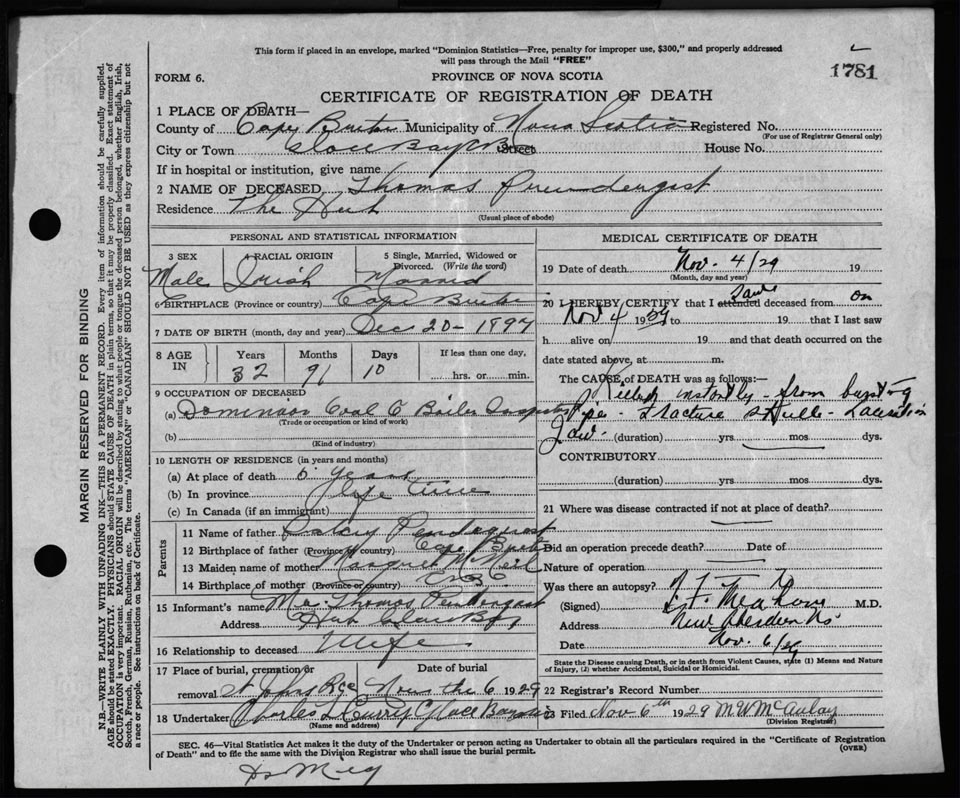 This form if placed in an envelope, marked "Dominion Statistics—Free, penalty for improper use, $300," and properly addressed
will pass through the Mail "FREE"
1781
FORM 6.
PROVINCE OF NOVA SCOTIA
CERTIFICATE OF REGISTRATION OF DEATH
MARGIN RESERVED FOR BINDING
N.B.—WRITE PLAINLY WITH UNFADING INK—THIS IS A PERMANENT RECORD. Every item of information should be carefully supplied.
AGE should be stated EXACTLY. PHYSICIANS should STATE CAUSE OF DEATH in plain terms, so that it may be properly classified. Exact statement of
OCCUPATION is very important. RACIAL ORIGIN will be described by stating to what people or tongue the deceased person belonged, whether English, Irish,
Scotch, French, German, Russian, Ruthenian, etc. The terms "AMERICAN" or "CANADIAN" SHOULD NOT BE USED as they express citizenship but not
a race or people. See instructions on back of Certificate.
1 PLACE OF DEATH—
County of Cape Breton Municipality of Nova Scotia Registered No.
(For use of Registrar General only)
City or Town Glace Bay CB Street House No.
If in hospital or institution, give name
2 NAME OF DECEASED Thomas Prendergast
Residence The Hub
(Usual place of abode)
PERSONAL AND STATISTICAL INFORMATION
3 SEX 4 RACIAL ORIGIN 5 Single, Married, Widowed or
Divorced. (Write the word)
Male Irish Married
6 BIRTHPLACE (Province or country) Cape Breton
7 DATE OF BIRTH (month, day and year) Dec 20 - 1897
8 AGE IN Years Months Days If less than one day,
32 10 hrs. or min.
9 OCCUPATION OF DECEASED
(a) Dominion Coal C Boiler Inspector
(Trade or occupation or kind of work)
(b)
(Kind of industry)
10 LENGTH OF RESIDENCE (in years and months)
(a) At place of death years
(b) In province life time
(c) In Canada (if an immigrant)
Parents
11 Name of father
12 Birthplace of father (Province or country) Cape Breton
13 Maiden name of mother Margaret McNeil
14 Birthplace of mother (Province or country)
15 Informant's name Mrs. Thomas Pendergast
Address Hub Glace Bay
16 Relationship to deceased Wife
17 Place of burial, cremation or
removal St Johns Date of burial Nov the 6 1929
18 Undertaker Charles Curry Glace Bay
(Name and address)
MEDICAL CERTIFICATE OF DEATH
19 Date of death Nov. 4/29 19
(Month, day and year)
20 I HEREBY CERTIFY that I attended saw deceased from on
Nov 4 1929 to 19 that I last saw
h alive on 19 and that death occurred on the
date stated above, at m.
The CAUSE OF DEATH was as follows:—
Killed instantly - from bursting
pipe - Fracture Skull - Laceration
Jaw. (duration) yrs. mos. dys.
CONTRIBUTORY
(duration) yrs. mos. dys.
21 Where was disease contracted if not at place of death?
Did an operation precede death? Date of
Nature of operation
Was there an autopsy?
(Signed) M.D.
Address New Aberdeen NS
Date Nov. 6/29
State the Disease causing Death, or in death from Violent Causes, state (1) Means and Nature
of Injury, (2) whether Accidental, Suicidal or Homicidal.
22 Registrar's Record Number
23 Filed Nov 6th 1929 McAulay
(Division Registrar)
SEC. 46—Vital Statistics Act makes it the duty of the Undertaker or person acting as Undertaker to obtain all the particulars required in the "Certificate of Registration
of Death" and to file the same with the Division Registrar who shall issue the burial permit.
(OVER)